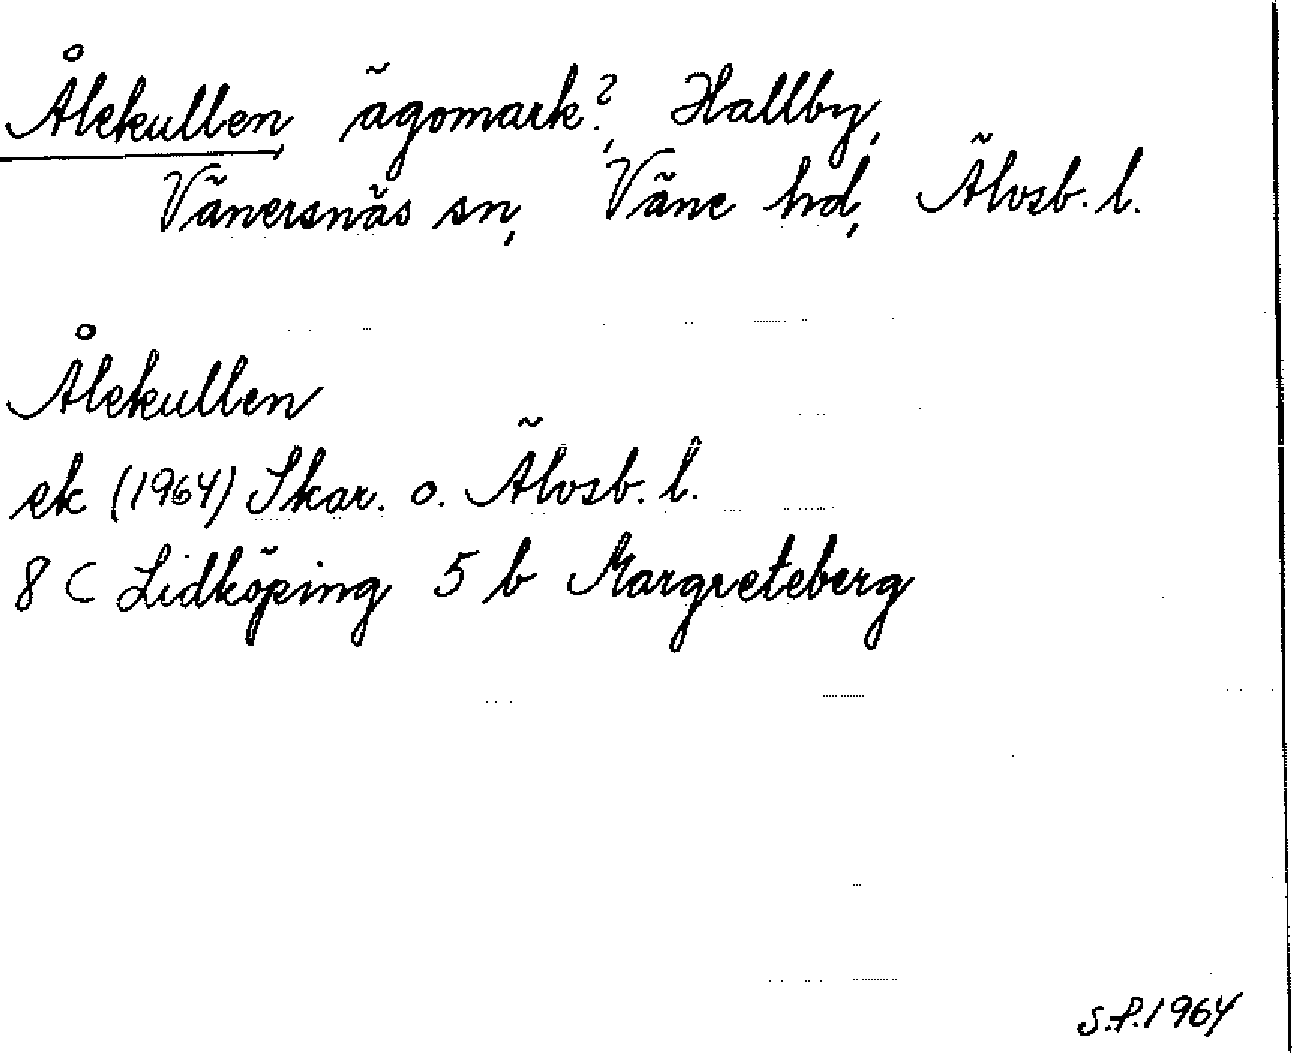 Ålekullen ägomark?, Hallby,
Vänersnäs sn, Väne hd, Älvsb. l.
Ålekullen
ek (1964) Skar. o. Älvsb. l.
8 C Lidköping 5 b Margreteberg
S.P. 1964